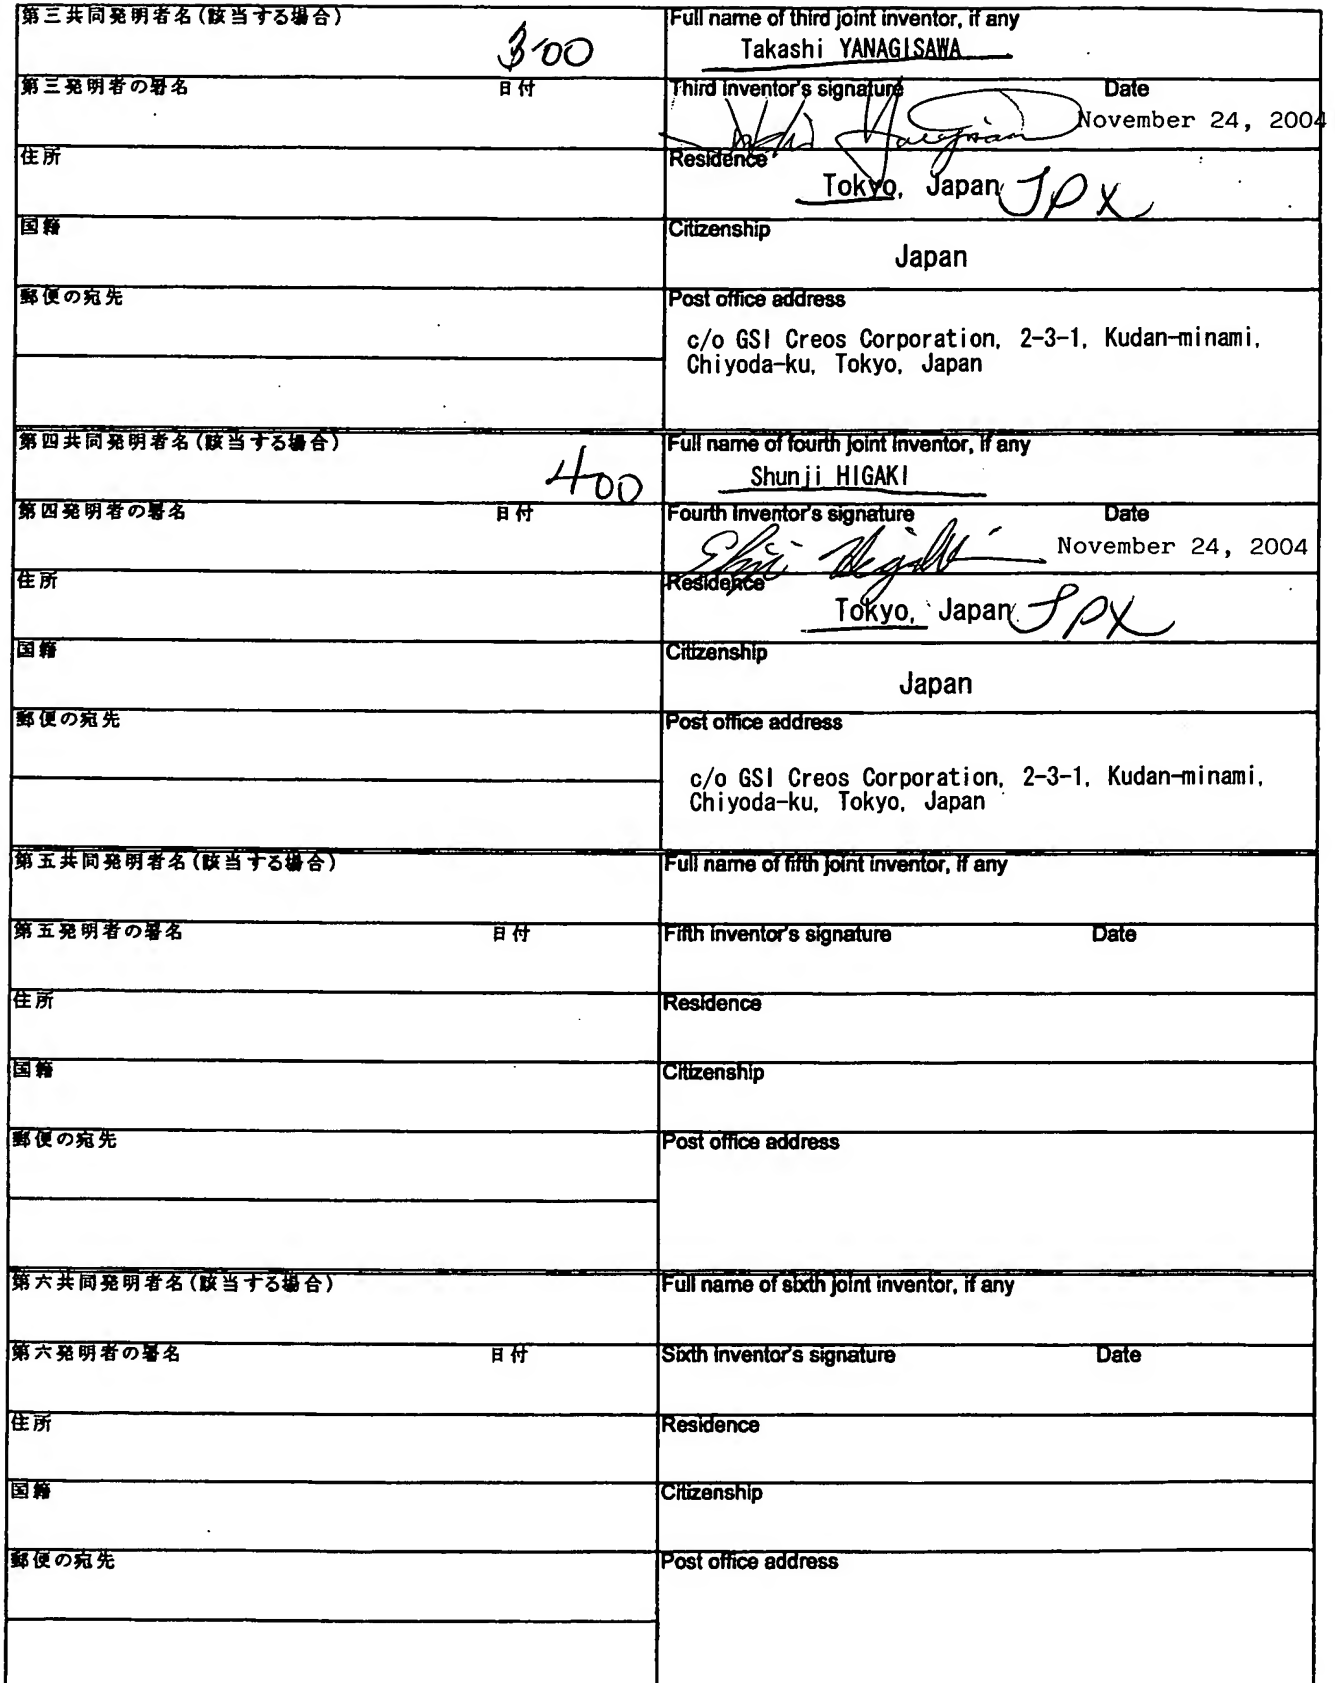 第三共同発明者名(該当する場合)
300
Full name of third joint inventor, if any
Takashi YANAGISAWA
第三発明者の署名 日付
Third inventor's signature Date
November 24, 2004
住所
Residence
Tokyo, Japan JPX
国籍
Citizenship
Japan
郵便の宛先
Post office address
c/o GSI Creos Corporation, 2-3-1, Kudan-minami,
Chiyoda-ku, Tokyo, Japan
第四共同発明者名(該当する場合)
400
Full name of fourth joint inventor, if any
Shunji HIGAKI
第四発明者の署名 日付
Fourth inventor's signature Date
November 24, 2004
住所
Residence
Tokyo, Japan JPX
国籍
Citizenship
Japan
郵便の宛先
Post office address
c/o GSI Creos Corporation, 2-3-1, Kudan-minami,
Chiyoda-ku, Tokyo, Japan
第五共同発明者名(該当する場合)
Full name of fifth joint inventor, if any
第五発明者の署名 日付
Fifth inventor's signature Date
住所
Residence
国籍
Citizenship
郵便の宛先
Post office address
第六共同発明者名(該当する場合)
Full name of sixth joint inventor, if any
第六発明者の署名 日付
Sixth inventor's signature Date
住所
Residence
国籍
Citizenship
郵便の宛先
Post office address